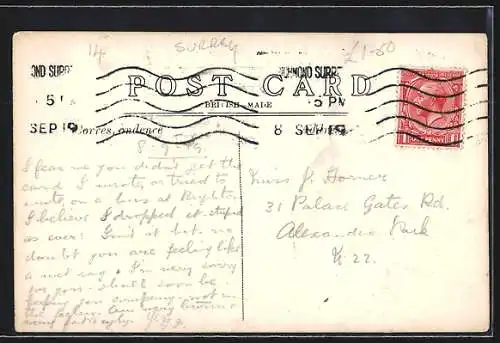 14 SURREY £1-50
OND SURR RICHMOND SURREY
POST CARD
5 PM BRITISH MADE 5 PM
SEP 19 Correspondence 8 SEP 19
ONE PENNY
I fear me you didn't get the
card I wrote, or tried to
write, on a bus at Brighton
I believe I dropped it. stupid
as ever! isn't it hot. no
doubt you are feeling like
a wet rag & I'm very sorry
for you - shall soon be
keeping you company - not in
the feeling. Am very brown &
Miss J. Horner
31 Palace Gates Rd.
Alexandra Park
N. 22.